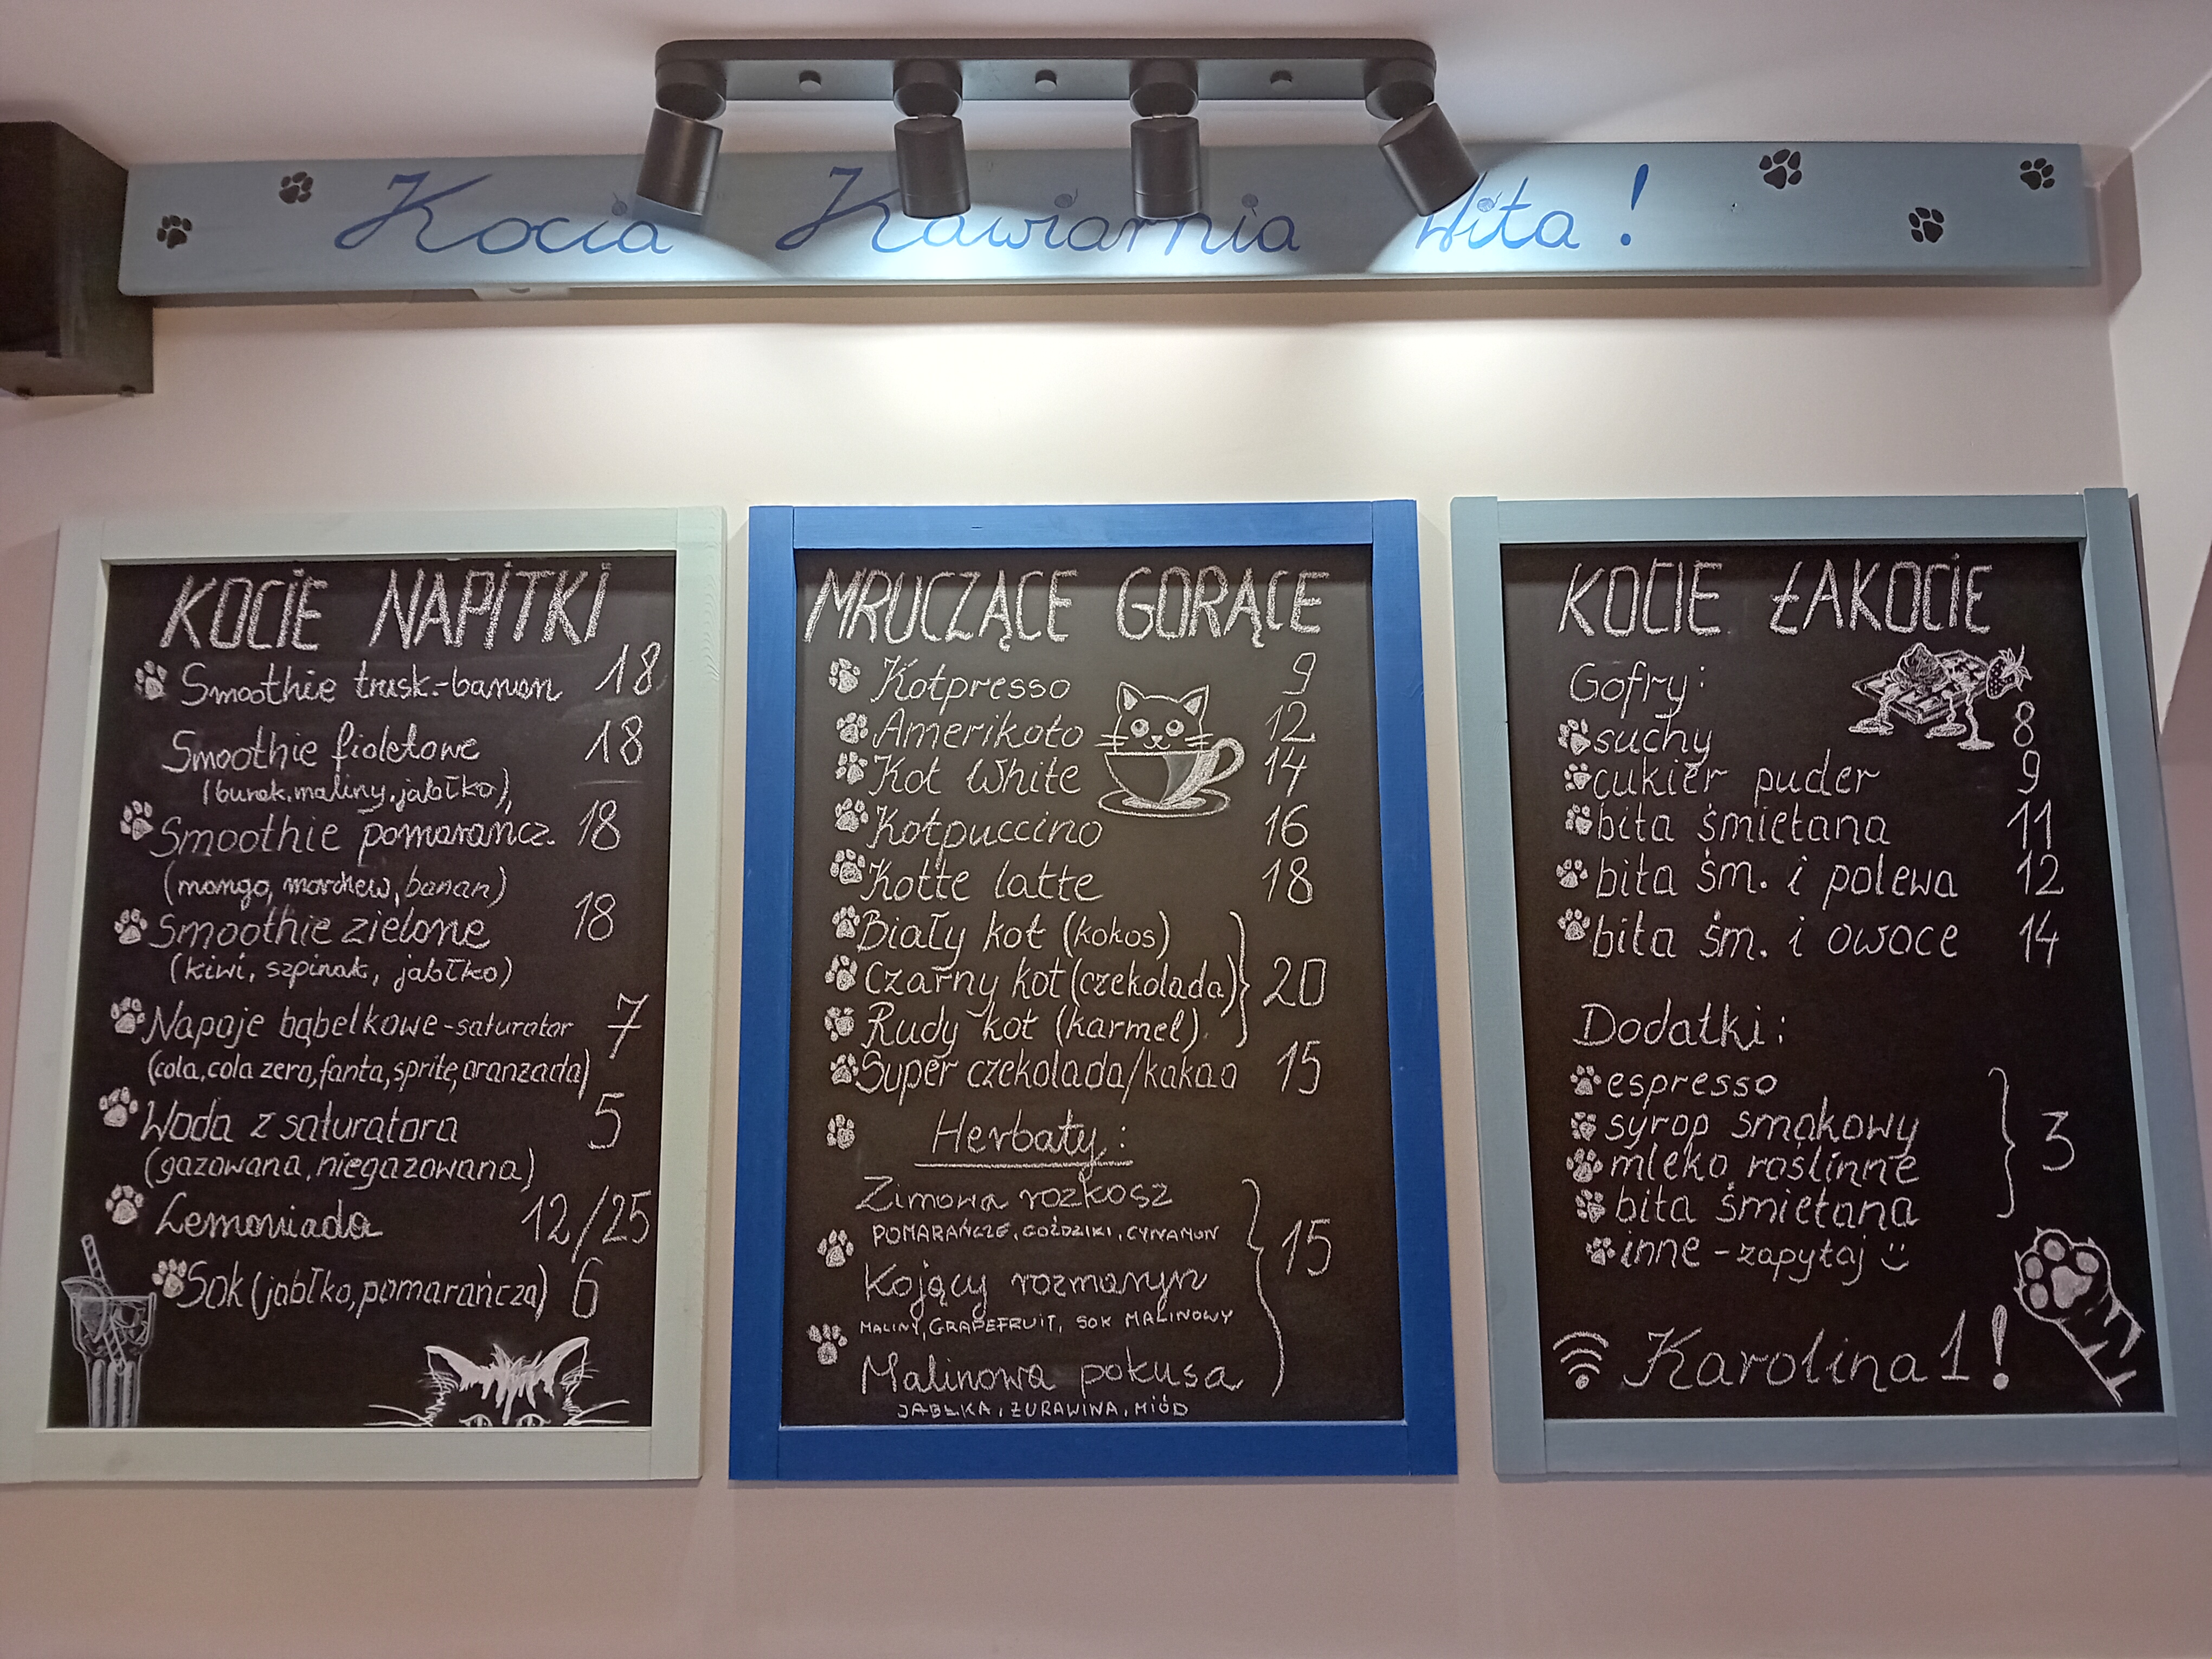 Kocia Kawiarnia Wita!
KOCIE NAPITKI
Smoothie trusk.-banan 18
Smoothie fioletowe 18
(burak, maliny, jabłko),
Smoothie pomarańcz. 18
(mango, marchew, banan)
Smoothie zielone 18
(kiwi, szpinak, jabłko)
Napoje bąbelkowe-saturator 7
(cola, cola zero, fanta, sprite, oranżada)
Woda z saturatora 5
(gazowana, niegazowana)
Lemoniada 12/25
Sok (jabłko, pomarańcza) 6
MRUCZĄCE GORĄCE
Kotpresso 9
Amerikoto 12
Kot White 14
Kotpuccino 16
Kotte latte 18
Biały kot (kokos)
Czarny kot (czekolada) 20
Rudy kot (karmel)
Super czekolada/kakao 15
Herbaty:
Zimowa rozkosz
POMARAŃCZE, GOŹDZIKI, CYNAMON
15
Kojący rozmaryn
MALINY, GRAPEFRUIT, SOK MALINOWY
Malinowa pokusa
JABŁKA, ŻURAWINA, MIÓD
KOCIE ŁAKOCIE
Gofry:
suchy 8
cukier puder 9
bita śmietana 11
bita śm. i polewa 12
bita śm. i owoce 14
Dodatki:
espresso
syrop smakowy 3
mleko roślinne
bita śmietana
inne - zapytaj
Karolina1!